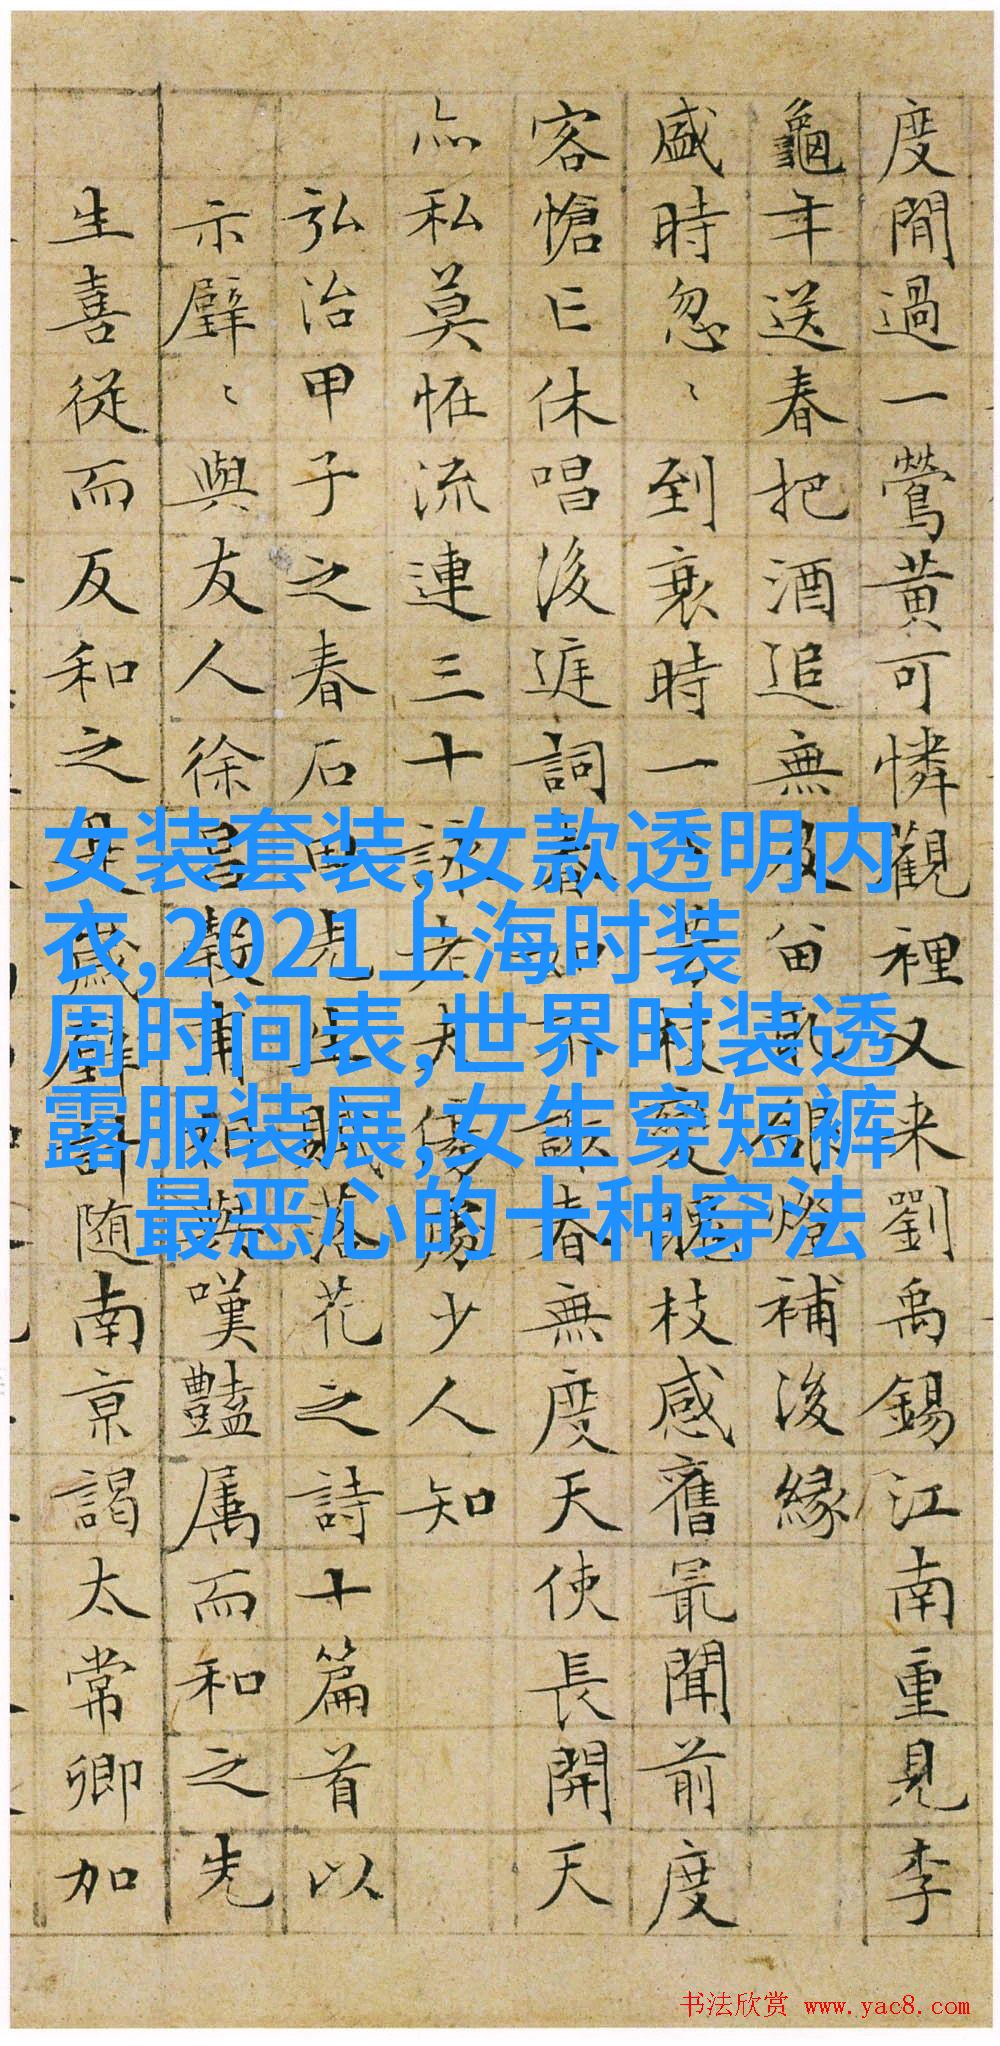 度閒過一鶯黃可憐觀裡又来劉禹錫江南重見李
龜年送春把酒追無及留燈補後緣
盛時忽〻到衰時一枝變枝感舊最聞前度
客愴亡休唱後庭詞春春無度天使長開天
亦私莫恠流連三十詠老夫傷少人知
弘治甲子之春石田先生賦落花之詩十篇首以
示璧〻與友人徐昌榖甫相與嘆豔属而和之先
生喜從而反和之是歲璧随南京謁太常卿加
女装套装,女款透明内
衣,2021上海时装
周时间表,世界时装透
露服装展,女生穿短裤
最恶心的十种穿法
书法欣赏 www.yac8.com